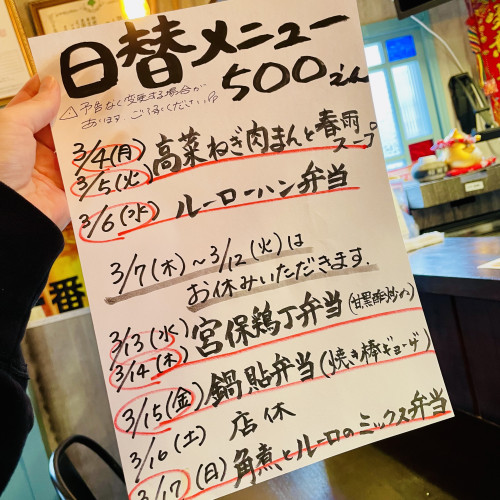 日替メニュー
500えん
⚠予告なく変更する場合が
あります ご了承ください。
3/4(月) 高菜ねぎ肉まんと春雨スープ
3/5(火)
3/6(水) ルーローハン弁当
3/7(木)～3/12(火)は
お休みいただきます。
3/13(水) 宮保鶏丁弁当(甘黒酢炒め)
3/14(木)
3/15(金) 鍋貼弁当(焼き棒ギョーザ)
3/16(土) 店休
3/17(日) 角煮とルーローのミックス弁当
番